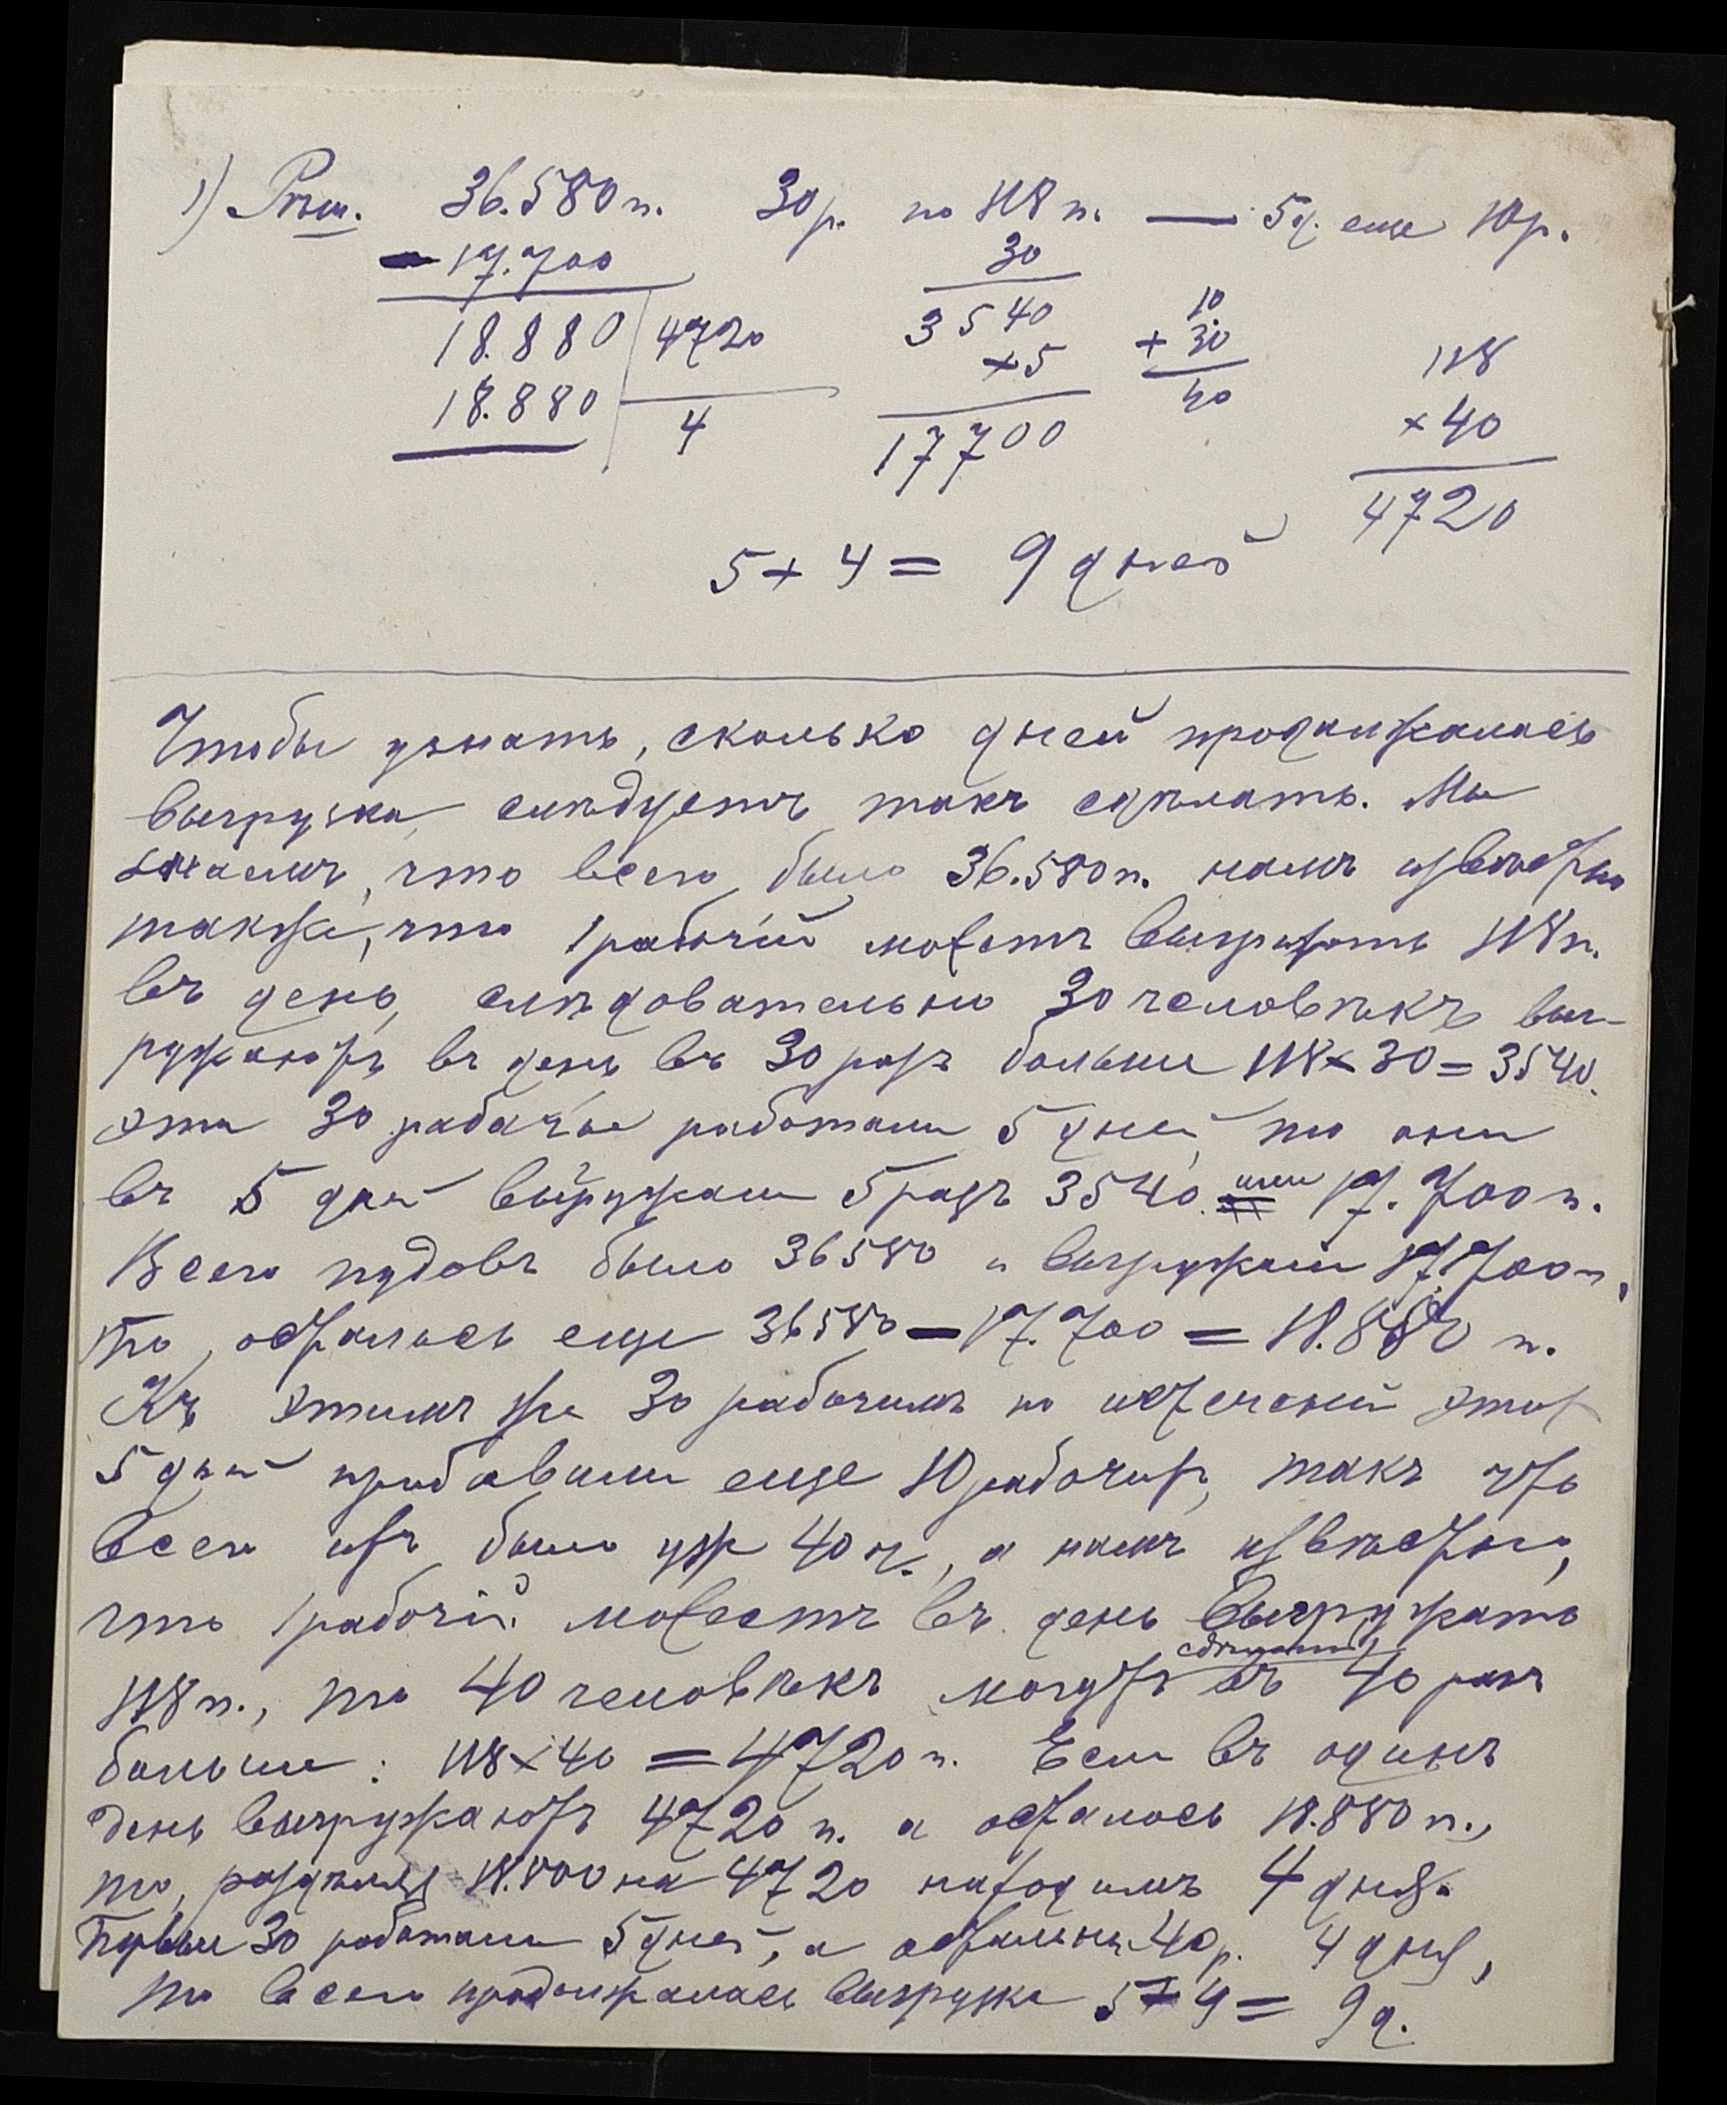 1) Рѣш. 36.580 п. 30 р. по 118 п. — 5 д. еще 10 р.
- 17.700 30
18.880 4720 3540 10 118
18.880 4 ×5 + 30 × 40
17700 40 4720
5 + 4 = 9 дней
Чтобы узнать, сколько дней продолжалась
выгрузка, слѣдуетъ такъ сдѣлать. Мы
знаемъ, что всего было 36.580 п. намъ извѣстно
также, что 1 рабочій можетъ выгрузить 118 п.
въ день, слѣдовательно 30 человѣкъ выг-
ружаютъ въ день въ 30 разъ больше 118 × 30 = 3540.
эти 30 рабочіе работали 5 дней, то они
въ 5 дней выгружали 5 разъ 3540 или 17.700 п.
Всего пудовъ было 36580 и выгружали 17.700 п.,
то, осталось еще 36580 — 17.700 = 18.880 п.
Къ этимъ же 30 рабочимъ по истеченіи этих
5 дней прибавили еще 10 рабочих, такъ что
всего ихъ было уже 40 ч., а намъ извѣстно,
что 1 рабочій можетъ въ день выгружать
118 п., то 40 человѣкъ могутъ въ 40 разъ
больше: 118 × 40 = 4720 п. Если въ одинъ
день выгружаютъ 4720 п. а осталось 18.880 п.,
то, раздѣляя 18.800 на 4720 находимъ 4 дня.
Первые 30 работали 5 дней, а остальные 40 р. 4 дня,
то всего продолжалась выгрузка 5 + 4 = 9 д.